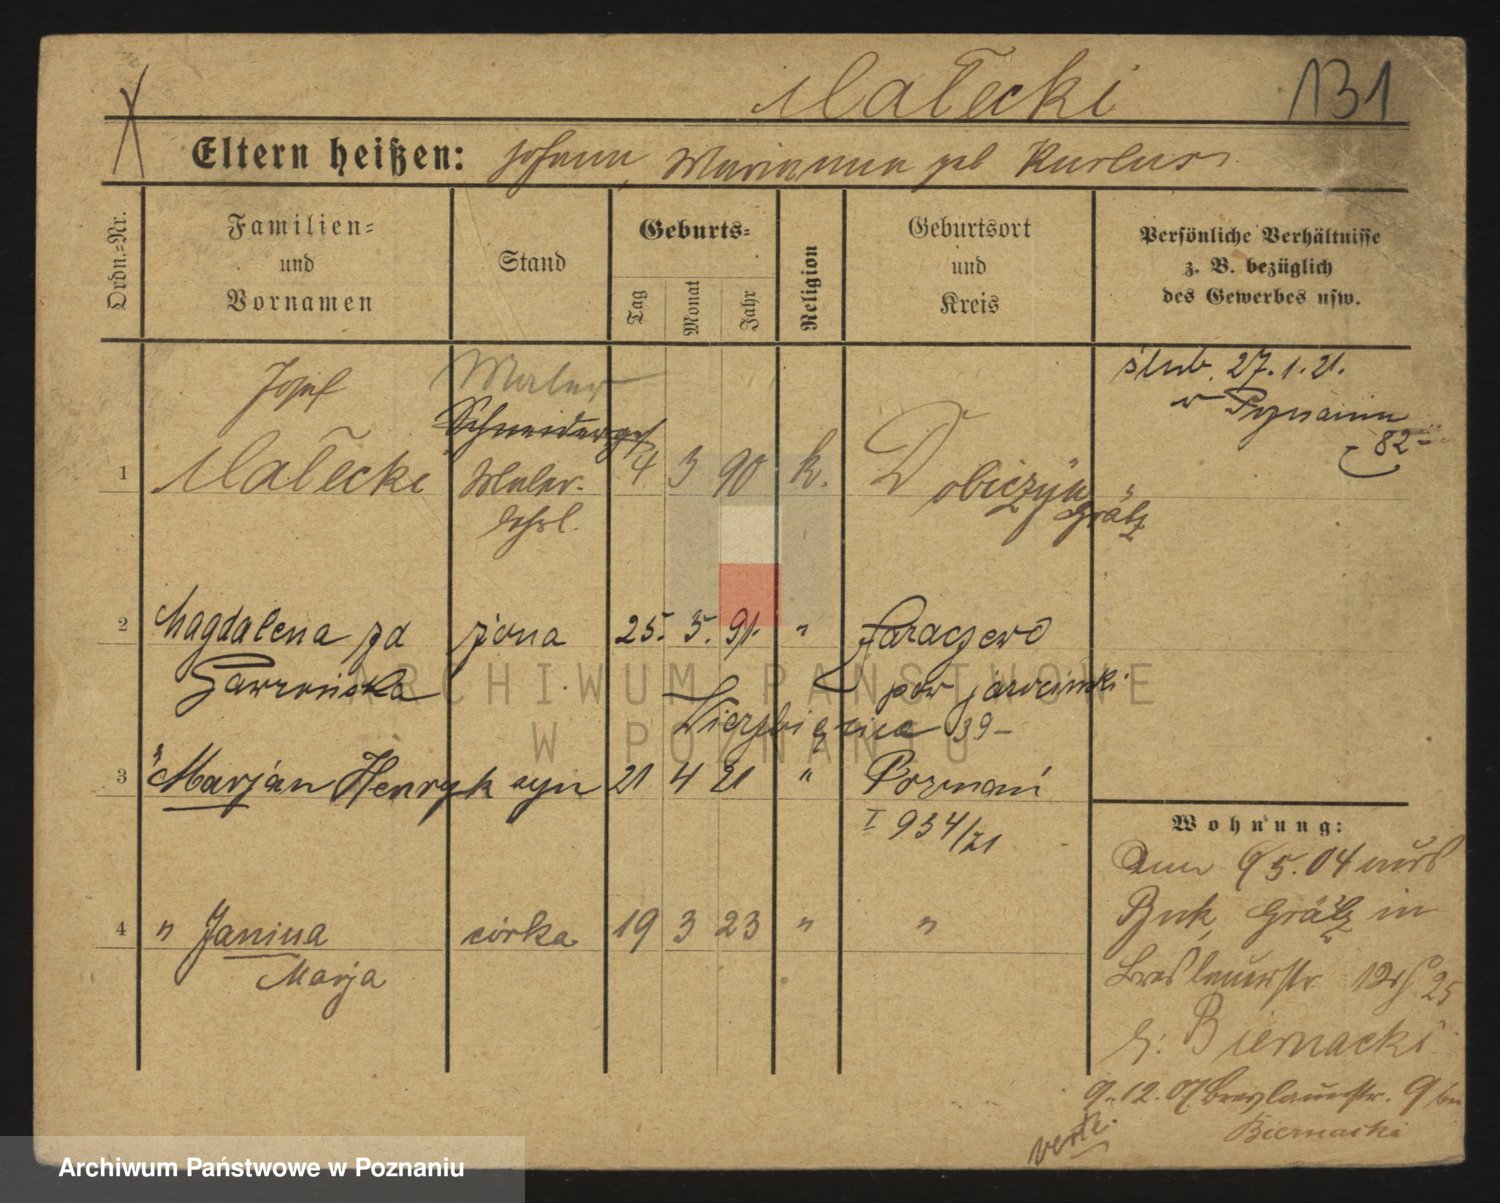 Małecki 131
Eltern heißen: Johann, Marianna geb Kurlus
Ordn.-Nr.
Familien-
und
Vornamen
Stand
Geburts-
Tag
Monat
Jahr
Religion
Geburtsort
und
Kreis
Persönliche Verhältnisse
z. B. bezüglich
des Gewerbes usw.
Josef
Maler
ślub. 27.1.21.
w Poznaniu
Schneiderges
82-
1 Małecki Maler- 4 3 90 k. Dobiczyn
lehrl. Grätz
2 Magdalena zd żona 25. 5. 91. " Jaraczewo
pow jarociński
Wierzbięcice 39-
3 " Marjan Henryk syn 21 4 21 " Poznań
I 934/21
4 " Janina córka 19 3 23 " "
Marja
Wohnung:
5.04 aus
Buk, Grätz in
Breslauerstr
b. Biernacki
9.12.07 Breslauerstr. 9 bei
Biernacki
verte.
ARCHIWUM PAŃSTWOWE
W POZNANIU
Archiwum Państwowe w Poznaniu